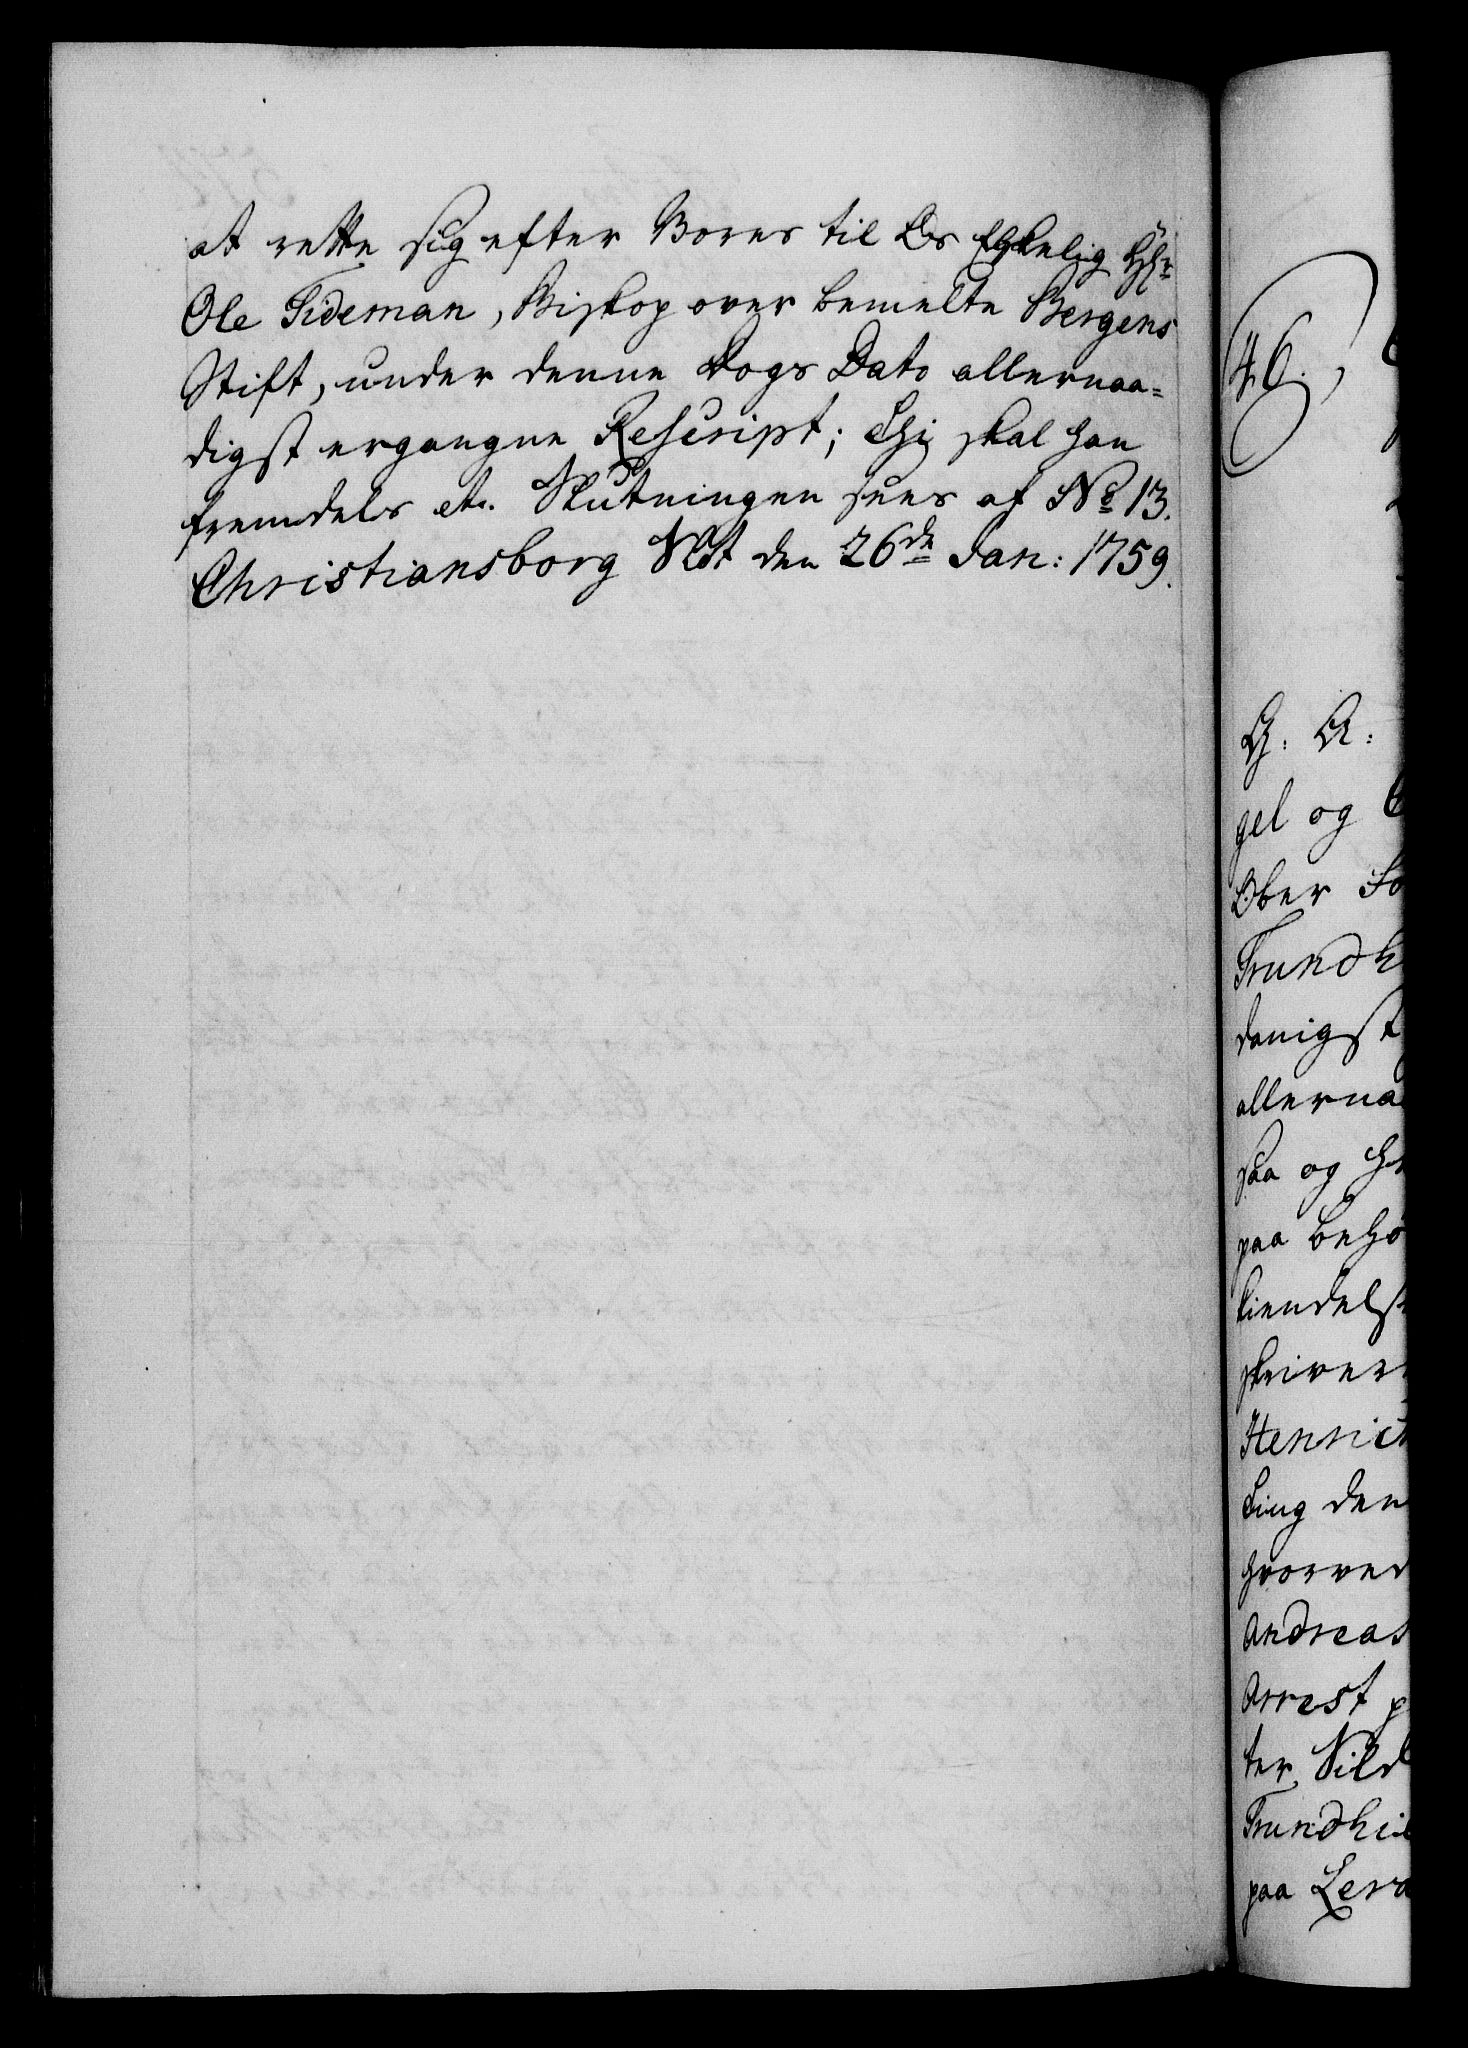 at rette sig efter Vores til Os Elskelig Hr:
Ole Tideman, Biskop over bemelte Bergens
Stift, under denne Dags Dato allernaa=
digst ergangne Rescript; Thi skal han
fremdeles etc. Slutningen sees af No 13.
Christiansborg Slot den 26de Jan: 1759.
46.
G. A:
gel og
Ober
Trundh
danigst
allernaa
saa og
paa behø
kiendelse
skriver
Henrich
ling den
hvorved
Andreas
Arrest p
ter Nild
Trundhi
paa Lera